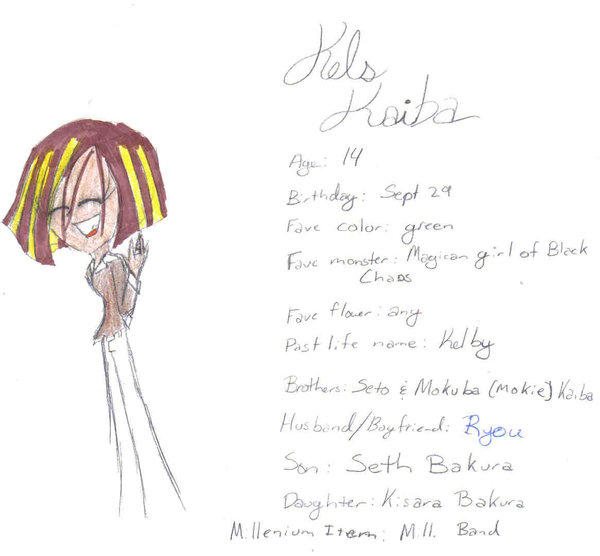 Kels
Kaiba
Age: 14
Birthday: Sept 29
Fave color: green
Fave monster: Magican girl of Black
Chaos
Fave flower: any
Past life name: Kelby
Brothers: Seto & Mokuba (Mokie) Kaiba
Husband/Boyfriend: Ryou
Son: Seth Bakura
Daughter: Kisara Bakura
Millenium Item: Mill. Band